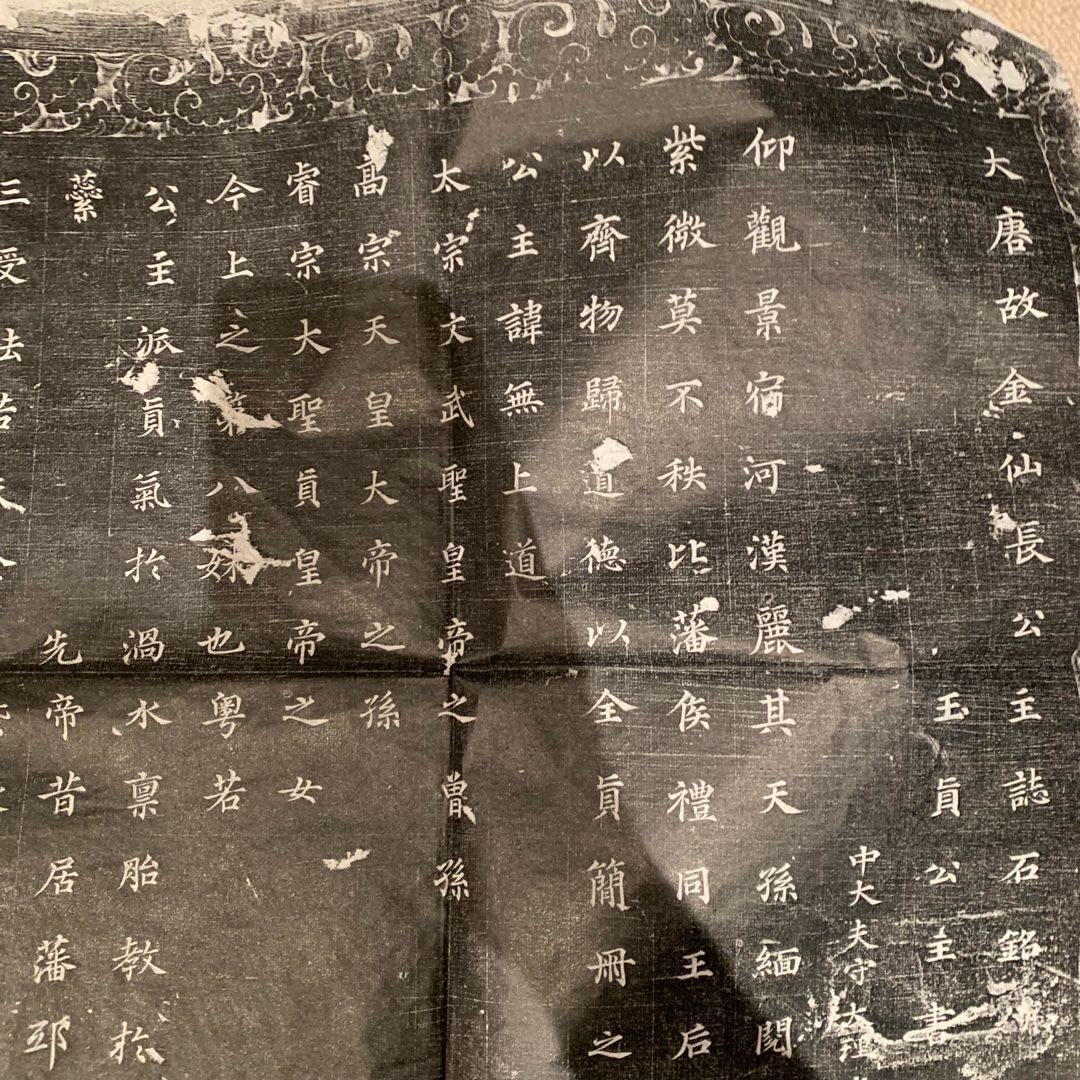 大唐故金仙長公主誌石銘
玉真公主書
中大夫守大
仰觀景宿河漢麗其天孫緬閱
紫微莫不秩比藩侯禮同王后
以齊物歸道德以全真簡冊之
公主諱無上道
太宗文武聖皇帝之曾孫
高宗天皇大帝之孫
睿宗大聖真皇帝之女
今上之第八妹也粵若
公主派真氣於渦水禀胎教於
蘂先帝昔居藩邸
三受法若